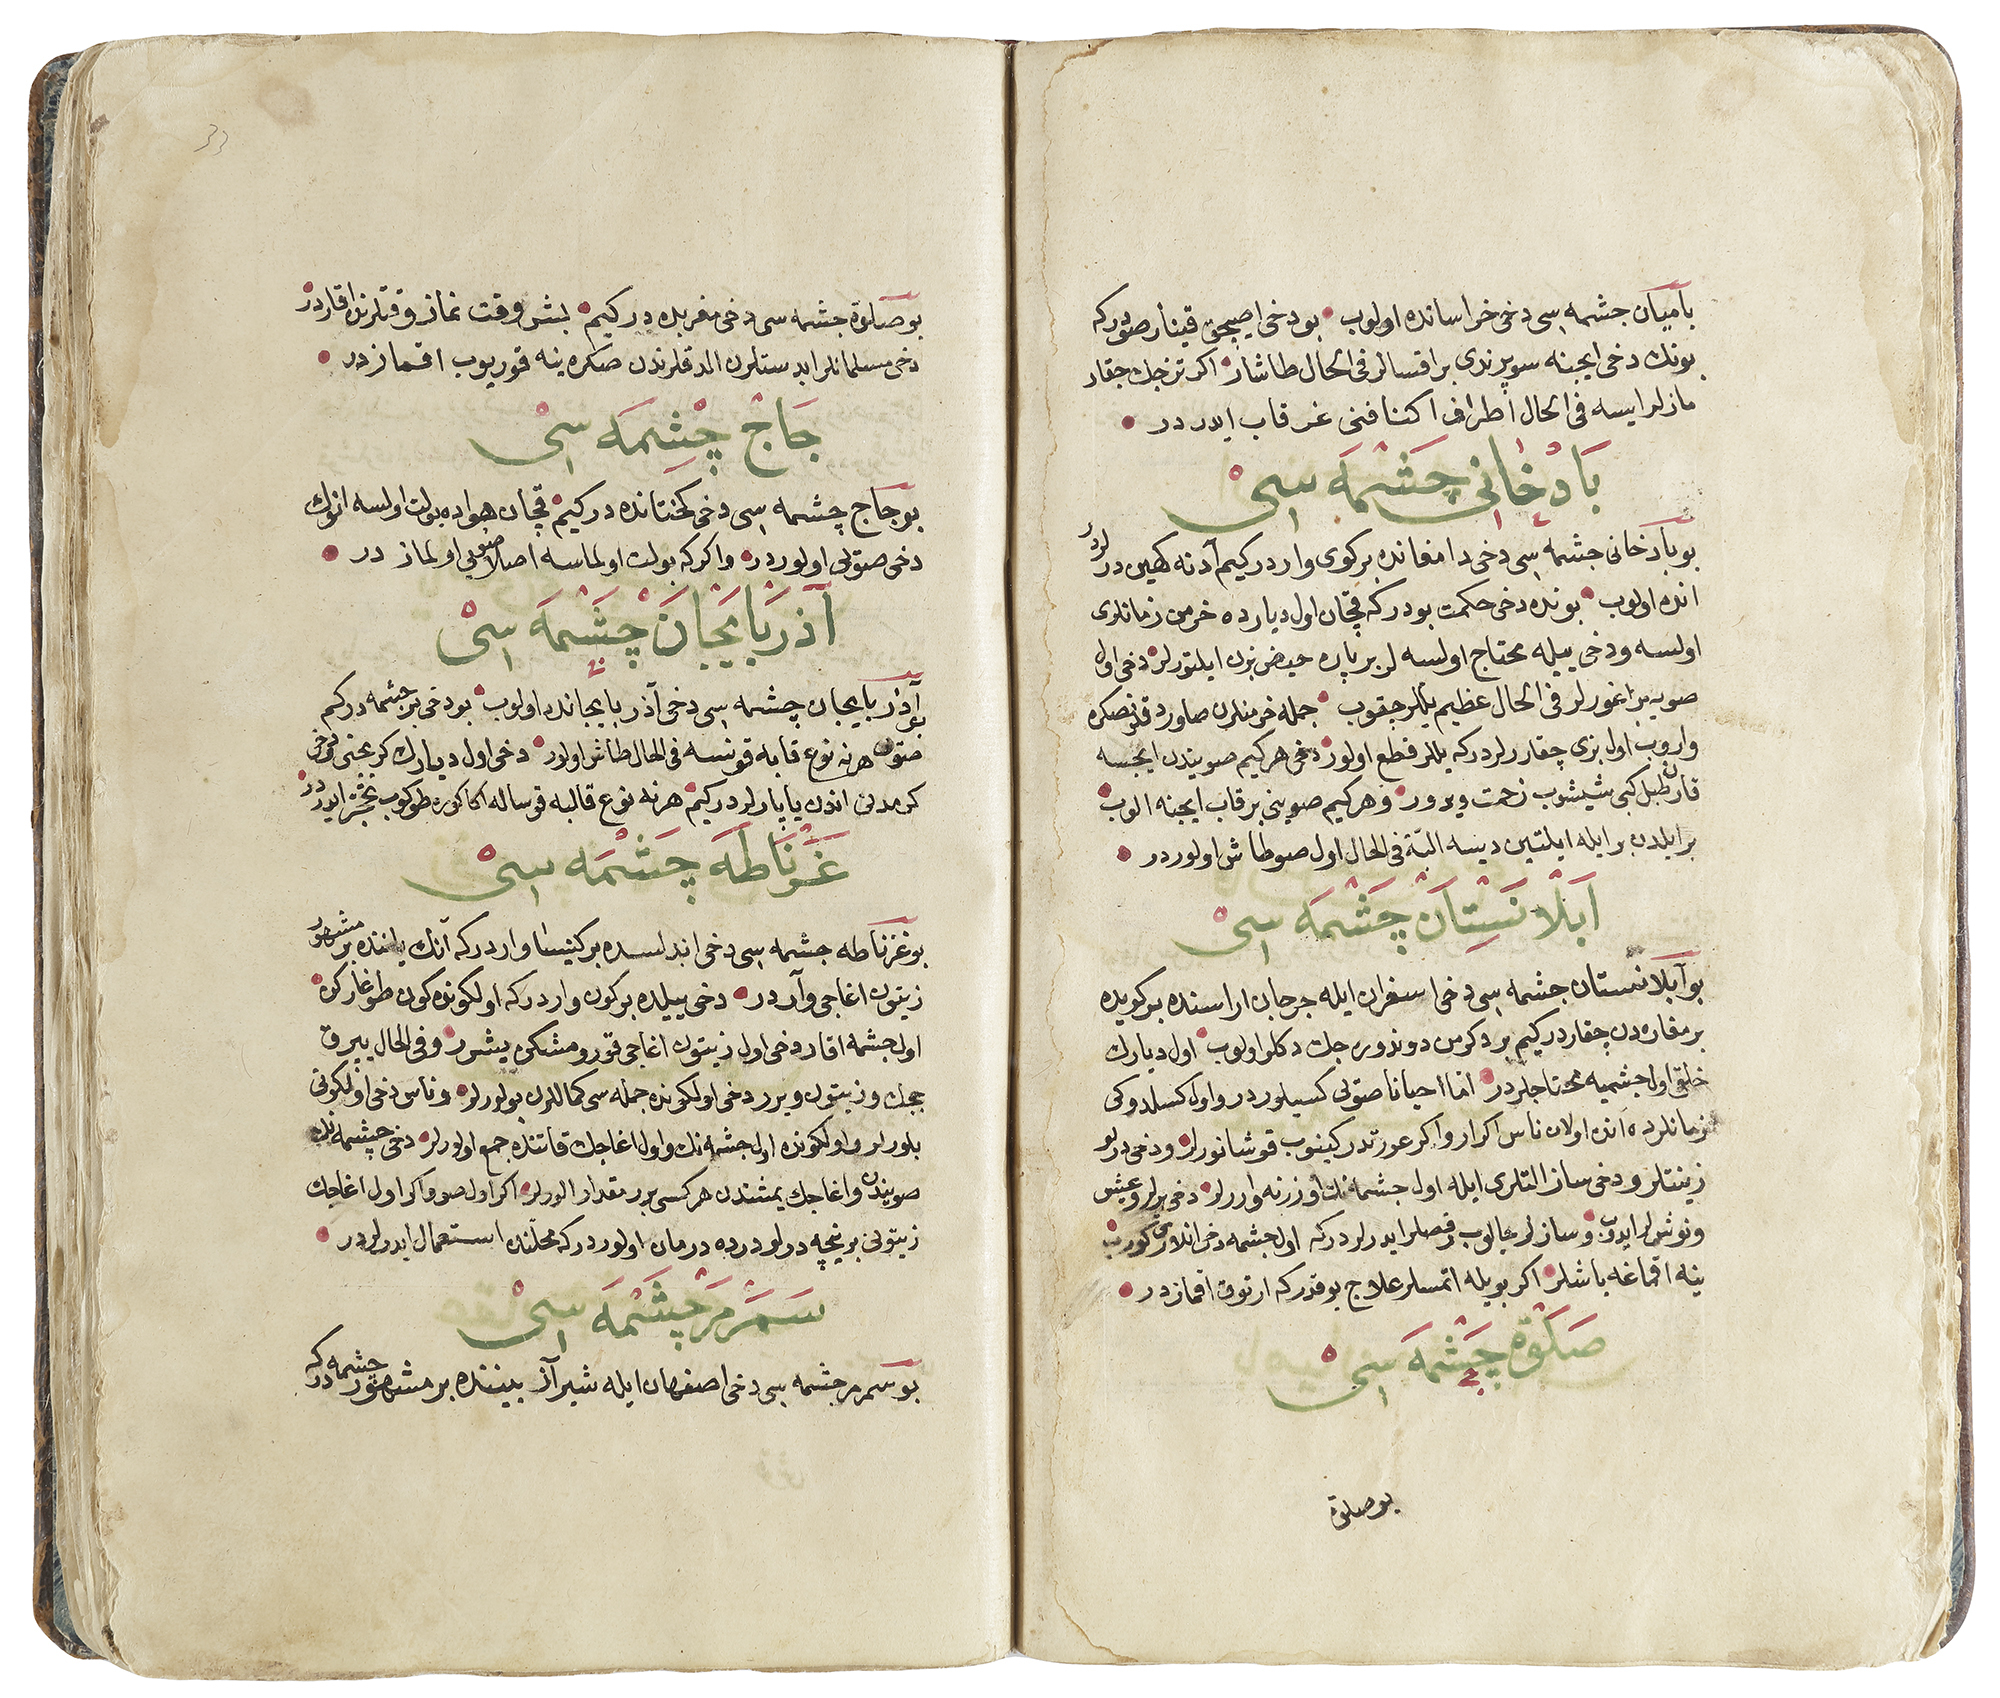 باميان چشمه سى دخى خراسانده اولوب بو دخى ايسيجق قينار صودر كه
بونك دخى ايچنه سوپرندى براقسالر فى الحال طاشار اكر تز جك چقار
مازلر ايسه فى الحال اطراف اكنافنى غرقاب ايدر در
بَادْخٰانِى چَشْمَه سِىْ
بو بادخانى چشمه سى دخى دامغانده بر كوى واردر كيم آدنه كهين ديرلر
انده اولوب بونده دخى حكمت بودر كه قچان اول ديارده خرمن زمانلرى
اولسه ودخى ييله محتاج اولسه لر بر پاره حيض بزن ايلتورلر دخى اول
صويه براغورلر فى الحال عظيم يللر چقوب جمله خرمنلرن صاوردقلرندنصكره
واروب اول بزى چقاررلر در كه يللر قطع اولور دخى هر كيم صويندن ايچسه
قارن طبل كبى شيشوب زحمت ويرور وهر كيم صوينى بر قاب ايچنه الوب
بر ايلدن بر ايله ايلتين ديسه البته فى الحال اول صو طاش اولور در
اَبَلْانَسْتِاَنْ چَشْمَه سِىْ
بو آبلانستان چشمه سى دخى اسفران ايله جرجان اراسنده بر كويده
بر مغاره دن چقار در كيم بر دكرمن دوندوره جك دكلو اولوب اول ديارك
خلقى اول چشميه محتاجلردر امّا احيانا صوئى كسيلور در و اول كسلدوكى
زمانلرده انده اولان ناس اكر ار و اكر عورتدر كينوب قوشانورلر ودخى درلو
زينتلر و دخى ساز التلرى ايله اول چشمه نك اوزرنه واررلر دخى يرلر وعيش
ونوش لر ايدوب و سازلر چالوب رقصلر ايدرلر در كه اول چشمه دخى انلارى كوروب
ينه اقماغه باشلر اكر بويله اتمسلر علاج يوقدر كه ارتوق اقمازدر
صَلَوْة چَشْمَه سِىْ
بو صلوة
بو صلوة چشمه سى دخى مغربده در كيم بش وقت نماز وقتلرنده اقاردر
دخى مسلمانلر ابدستلرن الدقلرندن صكره ينه قوريوب اقمازدر
جَاجْ چِشْمَه سِىْ
بو جاج چشمه سى دخى كختانده در كيم قچان هواده بولت اولسه انوك
دخى صوئى اولور در واكر كه بولت اولماسه اصلا صوئى اولماز در
آذَربَايجَانْ چَشْمَه سِىْ
بو آذربايجان چشمه سى دخى آذربايجانده اولوب بو دخى بر چشمه در كم
صوئن هر نه نوع قابه قونسه فى الحال طاش اولور دخى اول ديارك كربجنى دخى
كرمدنى اندن ياپارلر در كيم هر نه نوع قالبه قوسالر اكا كوره طوكوب تحجّر ايدر در
غَرْنَاطَه چَشْمَه سِىْ
بو غرناطه چشمه سى دخى اندلسده بر كنيسا واردر كه آنك ياننده بر مشهور
زيتون اغاجى واردر دخى ييلده بر كون واردر كه اولكونده كون طوغاركن
اول چشمه اقار دخى اول زيتون اغاجى قورومشكن يشرر و فى الحال يپرق
چيچك وزيتون ويرر دخى اولكونده جمله سى كماللرن بولورلر وناس دخى اولكونى
بلورلر و اولكونده اول چشمه نك و اول اغاجك قاتنده جمع اولورلر دخى چشمه نك
صويندن و اغاجك يمشندن هر كسى بر مقدار الورلر اكر اول صو و اكر اول اغاجك
زيتونى بر نيچه درلو درده درمان اولور در كه محلّنده استعمال ايدرلر در
سَمَرْمَرْ چَشْمَه سِىْ
بو سمرمر چشمه سى دخى اصفهان ايله شيراز بيننده بر مشهور چشمه در كه